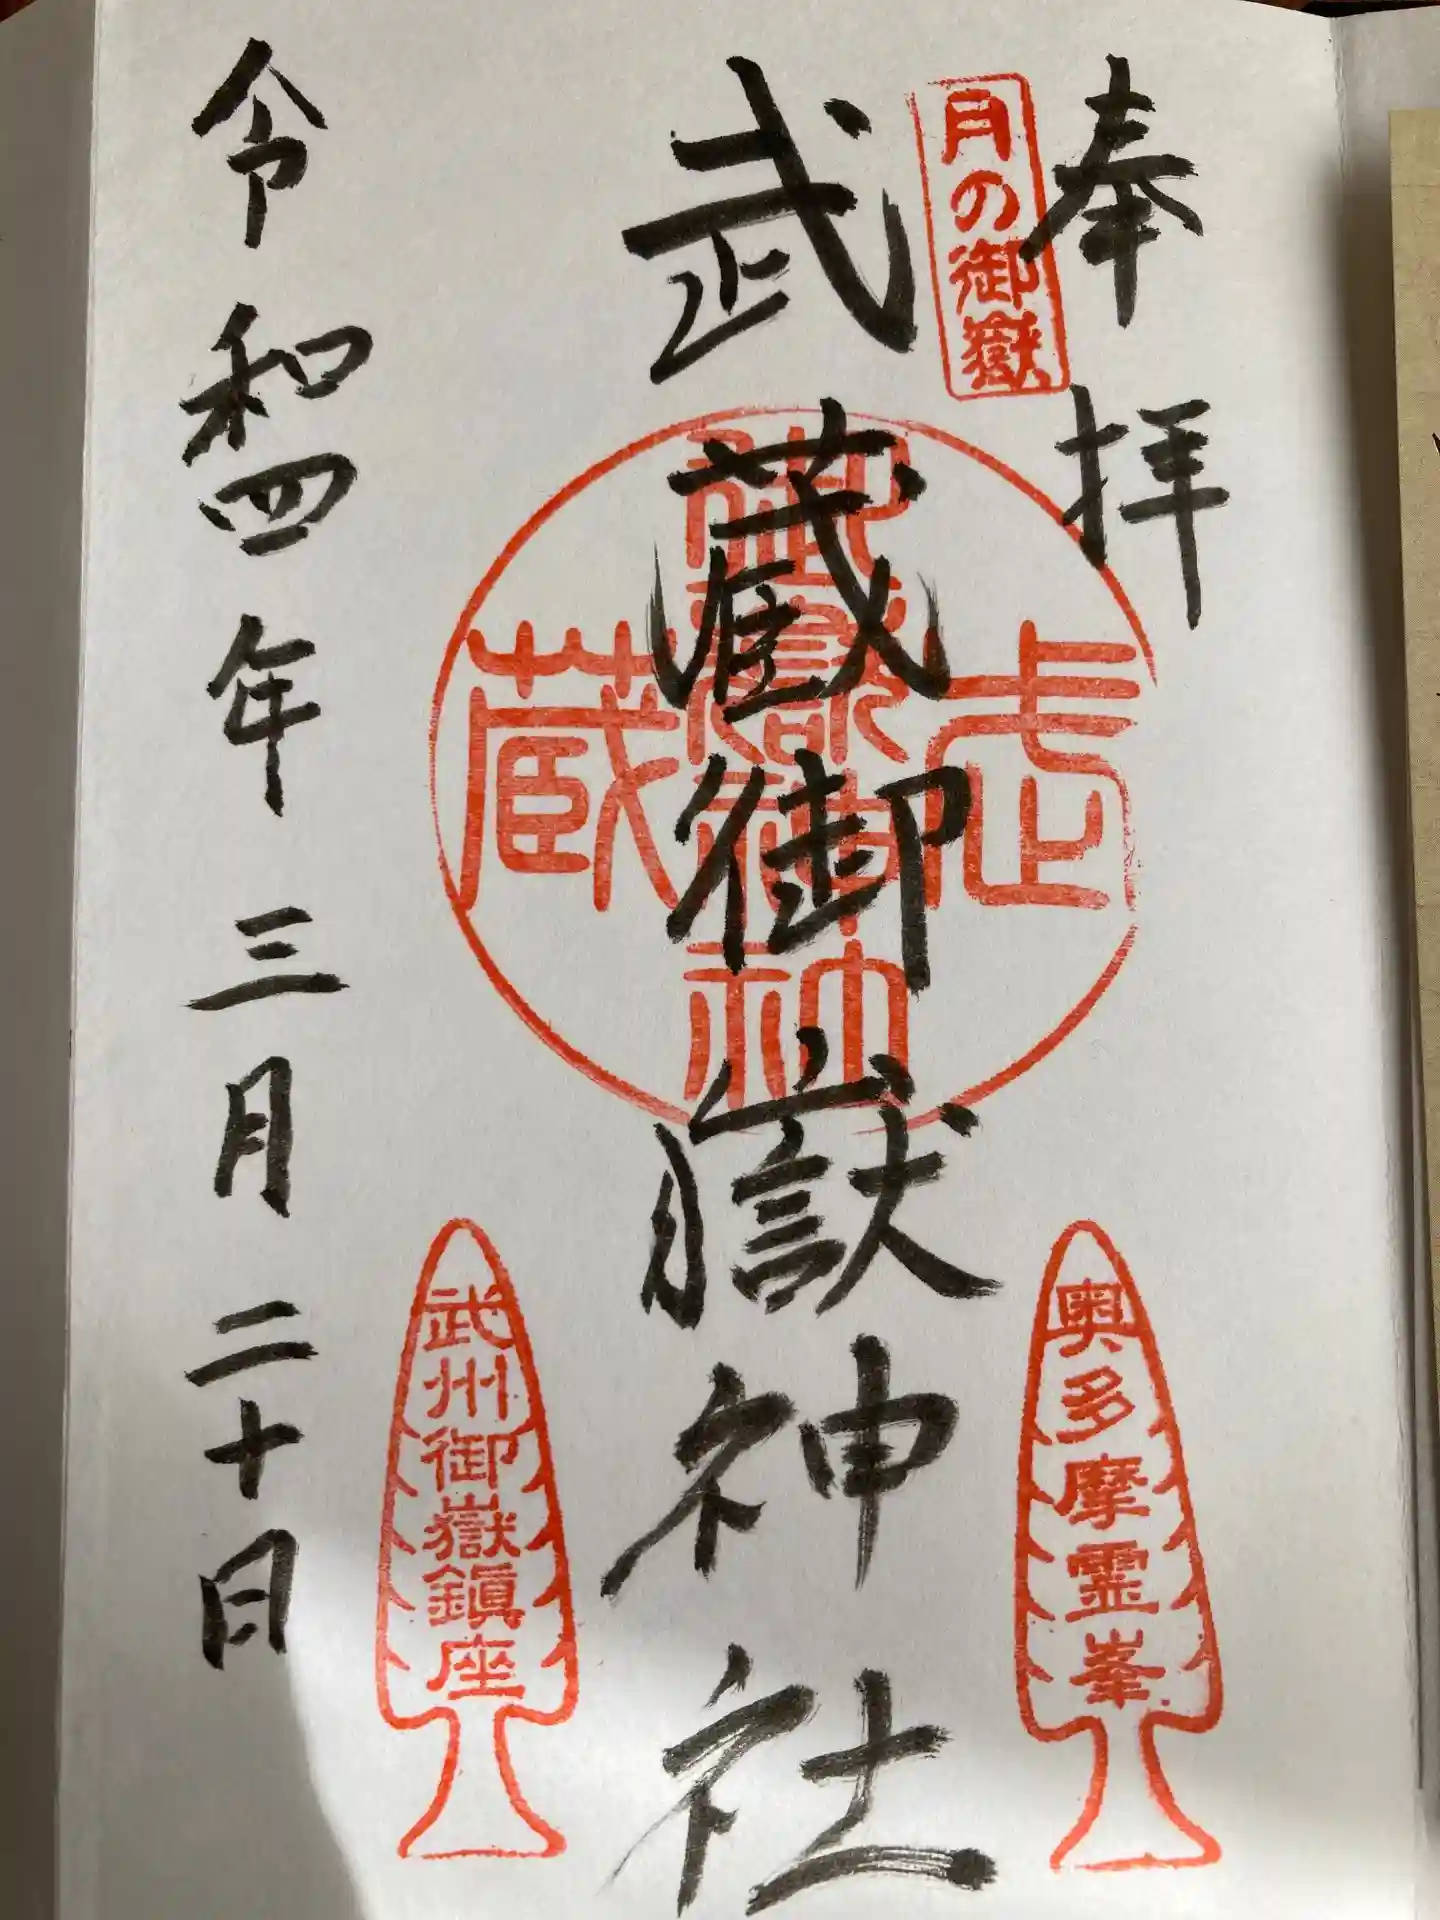 奉拝
月の御嶽
武蔵御嶽神社
武蔵
御嶽神社
奥多摩霊峯
武州御嶽鎮座
令和四年三月二十日